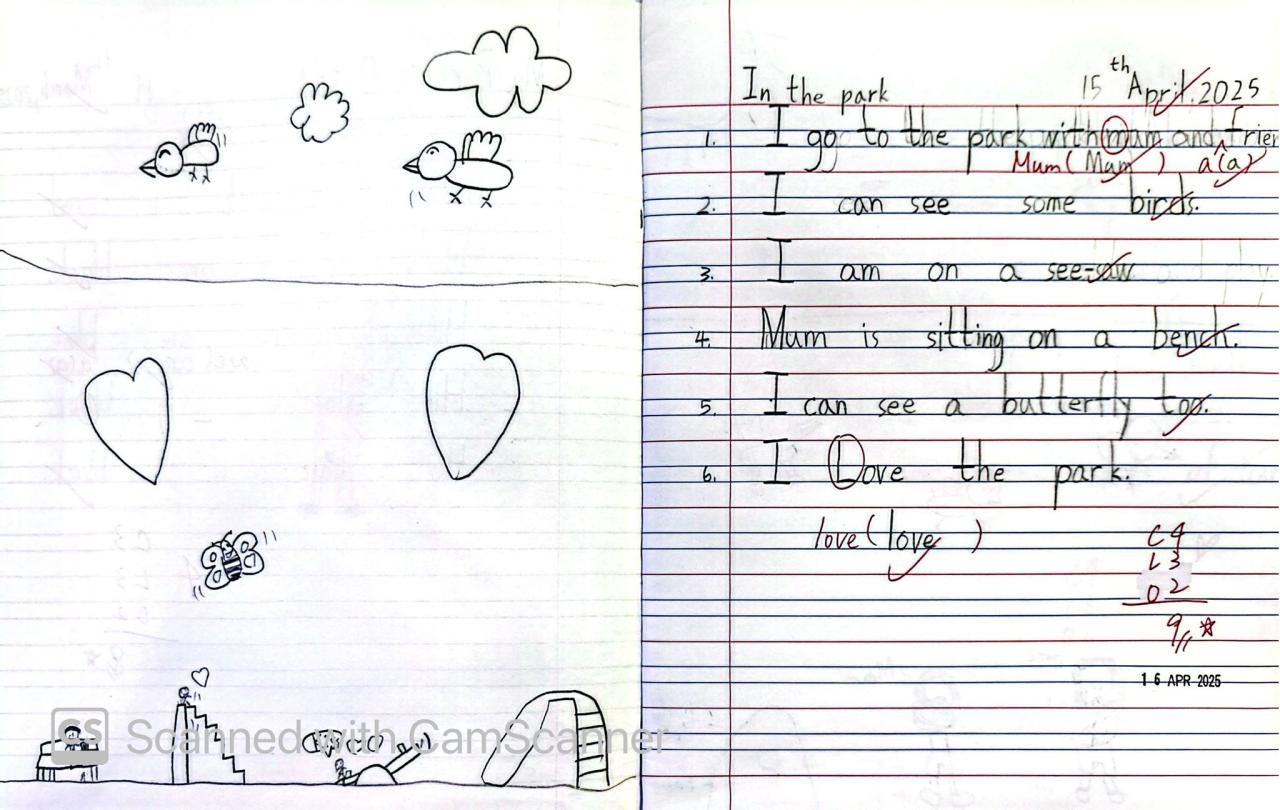 In the park
15th April, 2025
1. I go to the park with mum and frien
Mum(Mum) a(a)
2. I can see some birds.
3. I am on a see-saw
4. Mum is sitting on a bench.
5. I can see a butterfly too.
6. I Love the park.
love(love)
C4
L3
O2
9
16 APR 2025
CS Scanned with CamScanner